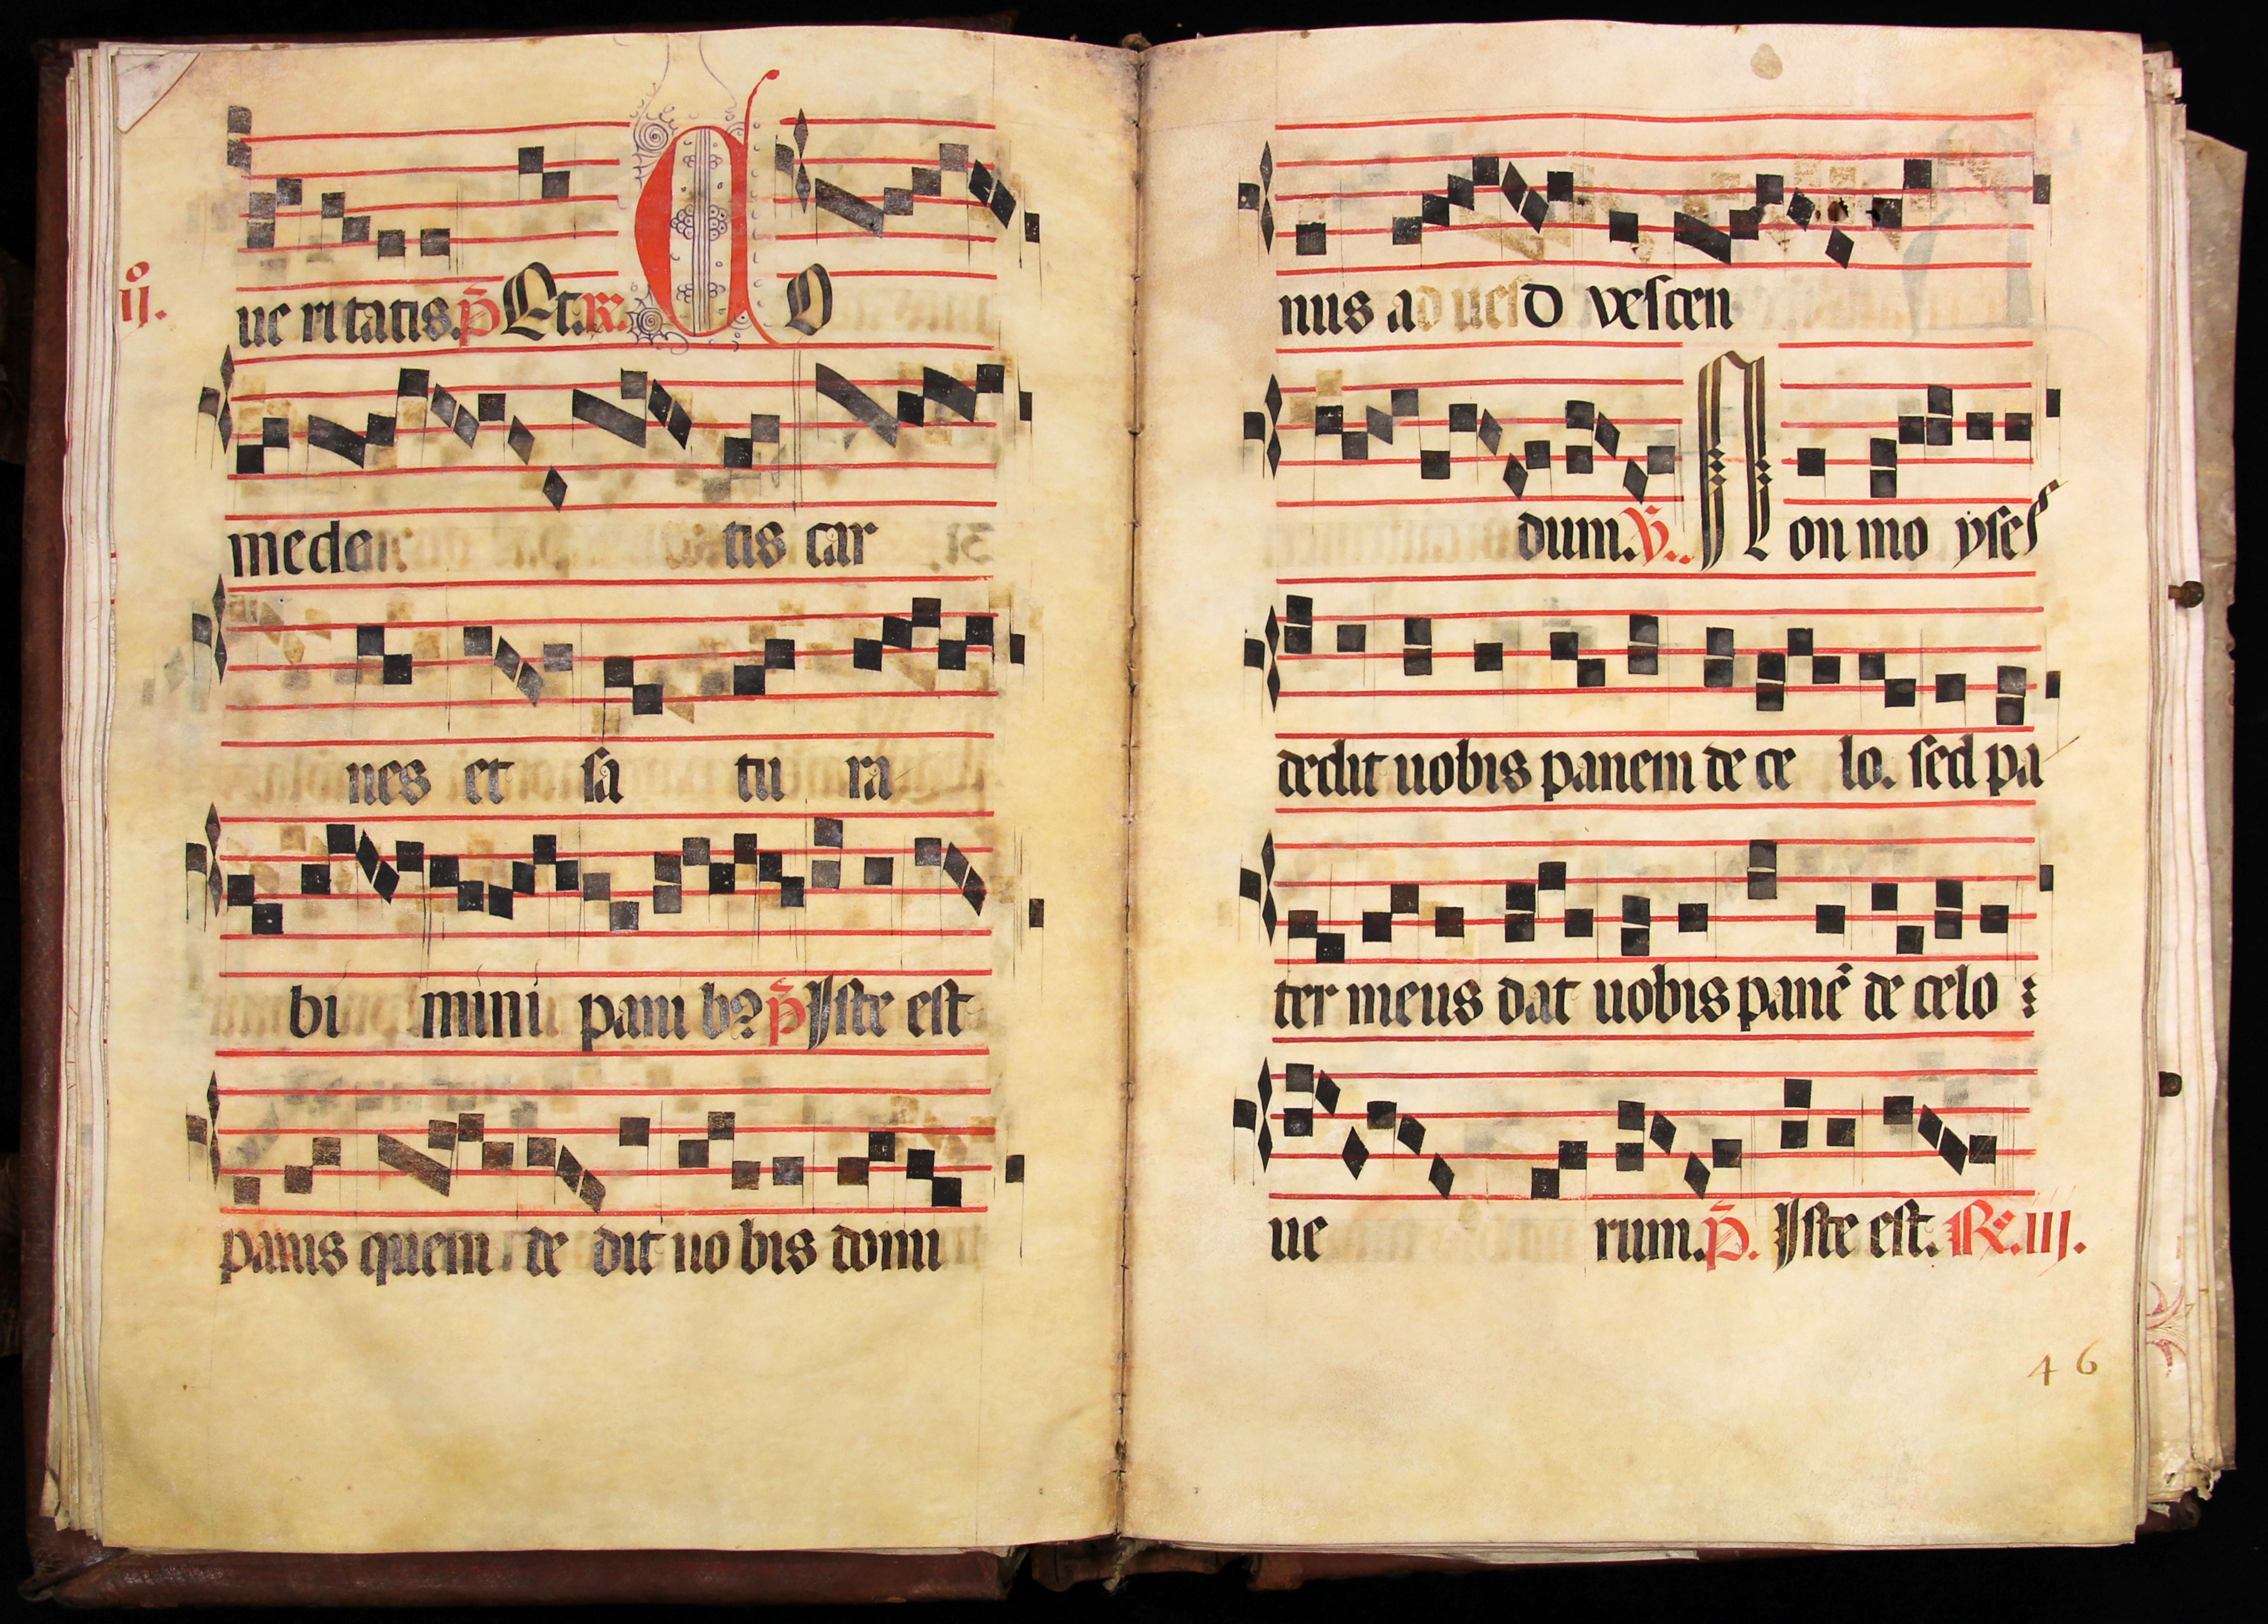 ij.
ue ritatis. p̄ Et. R. C O
medetis car
nes et sa tu ra
bi mini pani bꝰ p̄ Iste est
panis quem de dit uo bis domi
nus ad vescen
dum. V. Non mo yses
dedit uobis panem de ce lo. sed pa
ter meus dat uobis panē de celo
ue rum. p̄. Iste est. R. iij.
46